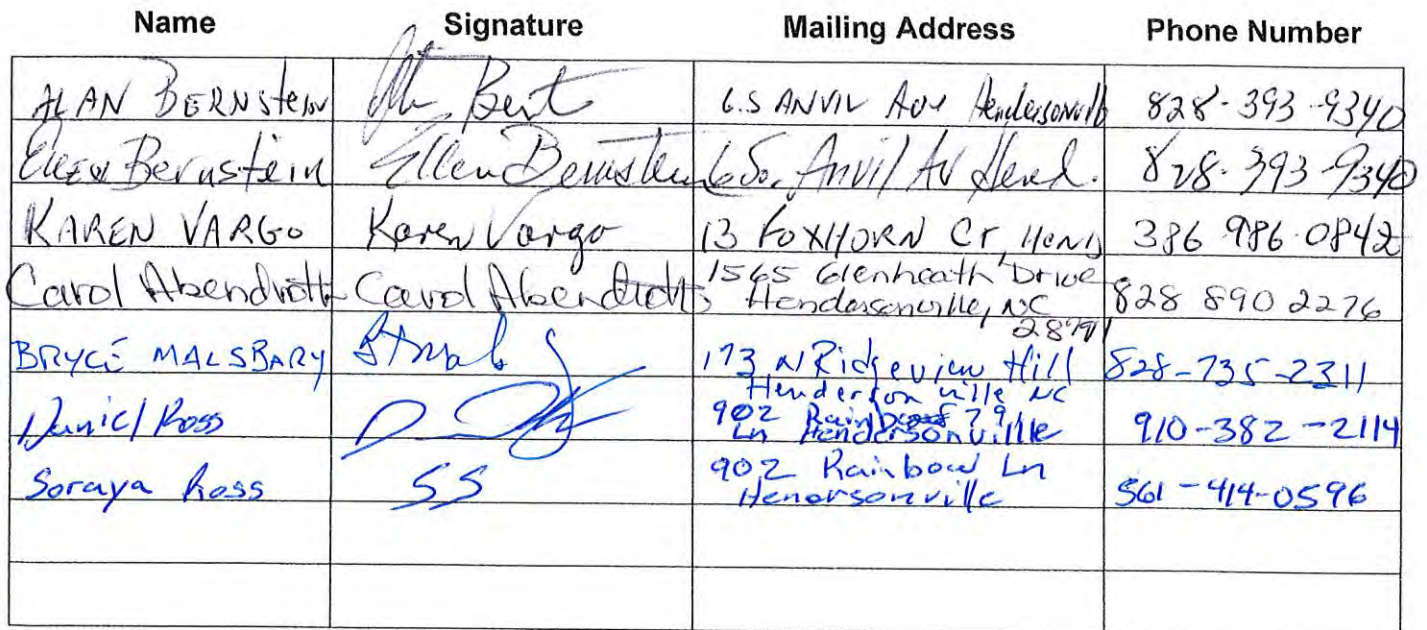 Name Signature Mailing Address Phone Number
ALAN BERNSteIN 6.S ANVIL Ave Hendersonvill 828-393-9340
Ellen Bernstein Ellen Bernstein 6 So. Anvil Av Hend. 828-393-9340
KAREN VARGO Karen Vargo 13 FOXHORN Cr, HEND 386 986 0842
Carol Abendroth Carol Abendroth 1565 Glenheath Drive
Hendersonville, NC 828 890 2276
BRYCE MALSBARY 173 N Ridgeview Hill 828-735-2311
Hendersonville NC
Daniel Ross 902
Ln Hendersonville 910-382-2114
Soraya Ross SS 902 Rainbow Ln
Henorsonville 561-414-0596